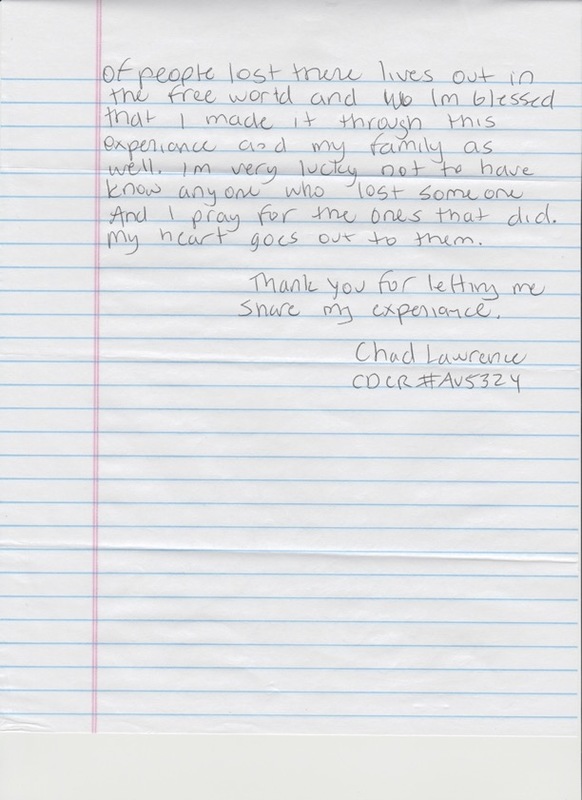 of people lost there lives out in
the free world and Im blessed
that I made it through this
experiance and my family as
well. Im very lucky not to have
know anyone who lost someone
And I pray for the ones that did.
my heart goes out to them.
Thank you for letting me
share my experiance.
Chad Lawrence
CDCR #AV5324